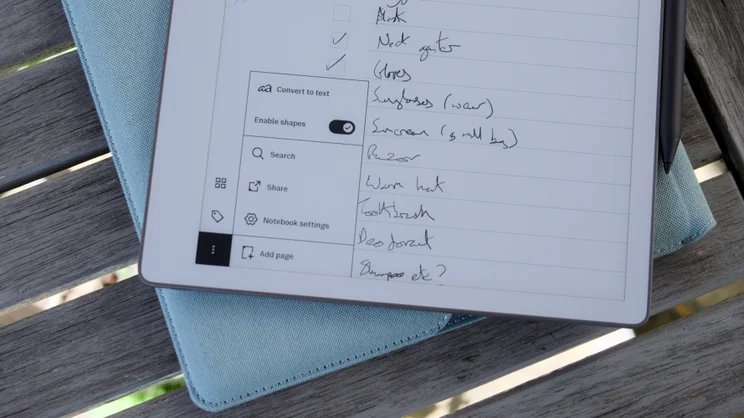 Mask
Neck gaiter
Gloves
Sunglasses (wear)
Suncream (small bag)
Razor
Warm hat
Toothbrush
Deodorant
Shampoo etc?
aa Convert to text
Enable shapes
Search
Share
Notebook settings
Add page